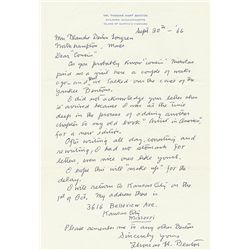 MR. THOMAS HART BENTON
CHILMARK, MASSACHUSETTS
Sept 30th - 66
Mrs Blanche Denton
Northampton, Mass
Dear "Cousin"
As you probably know "cousin"
paid me a visit here a couple of weeks
ago and we talked over the case of the
Yankee Bentons.
I did not acknowledge your letter when
it arrived because I was at the time
deep in the process of adding another
chapter to my old book "Artist in America,"
for a new edition.
After writing all day, correcting and
rewriting, I had no stomach for
letters, even nice ones like yours.
I hope this will "make up" for the
delay.
I will return to Kansas City on the
1st of Oct. My address there is
3616 Belleview Ave.
Kansas City
Missouri
Please remember me to any other Bentons
Sincerely yours
Thomas H. Benton